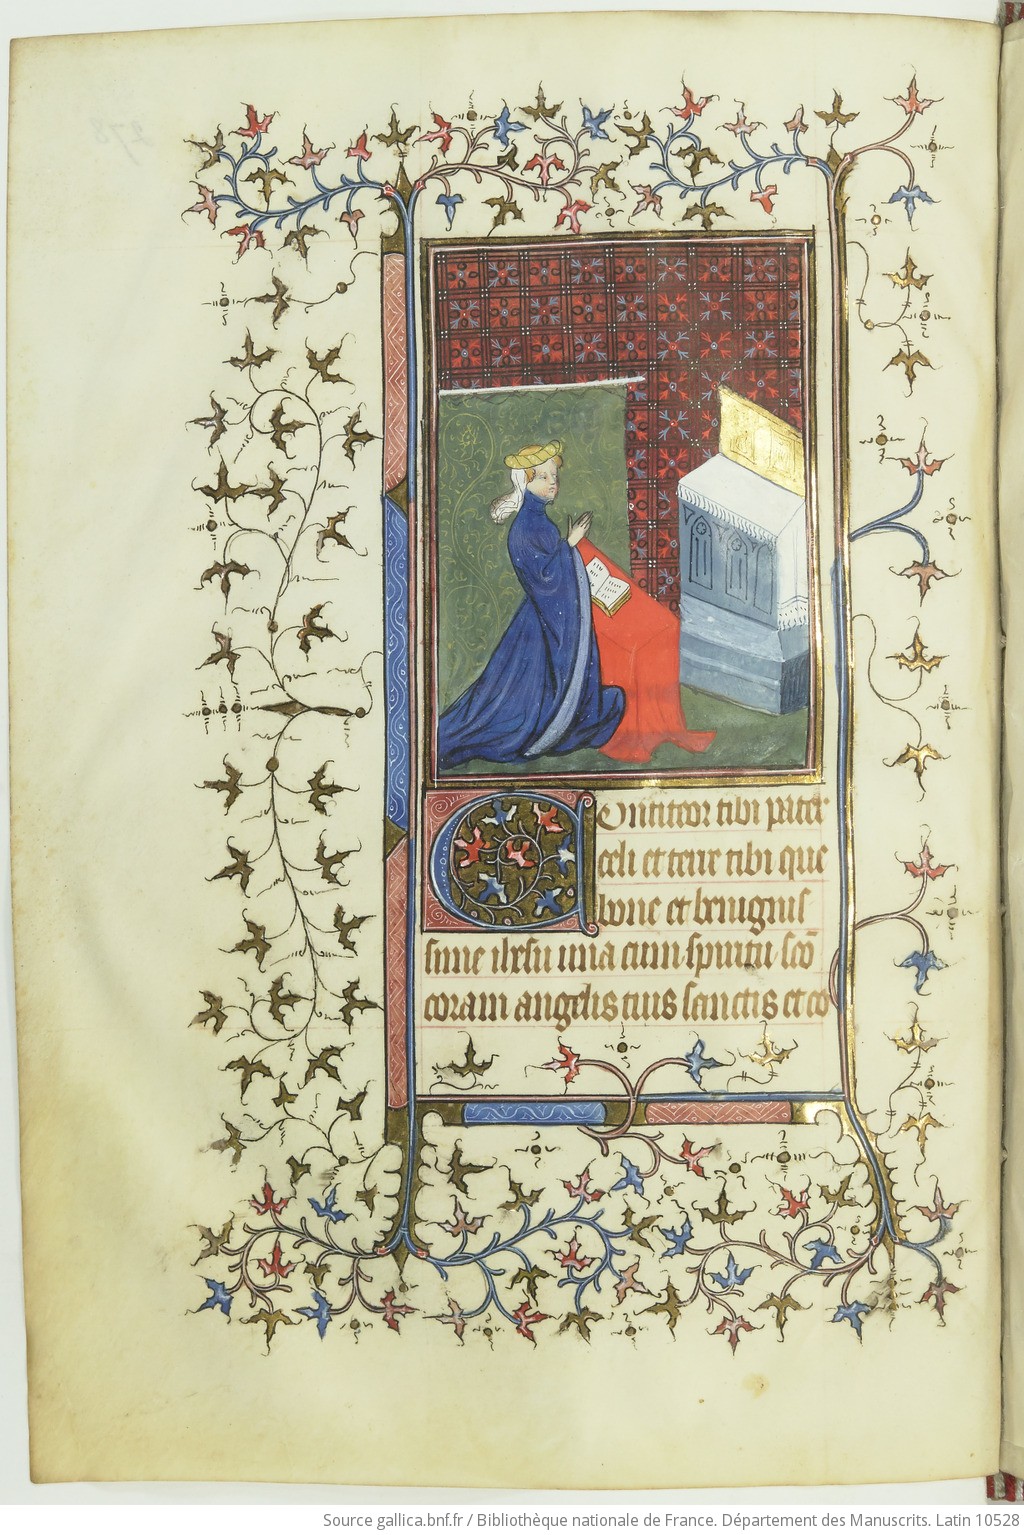 Onfiteor tibi pater
celi et terre tibi que
bone et benignis
sime ihesu una cum spiritu sco
coram angelis tuis sanctis et co
Source gallica.bnf.fr / Bibliothèque nationale de France. Département des Manuscrits. Latin 10528